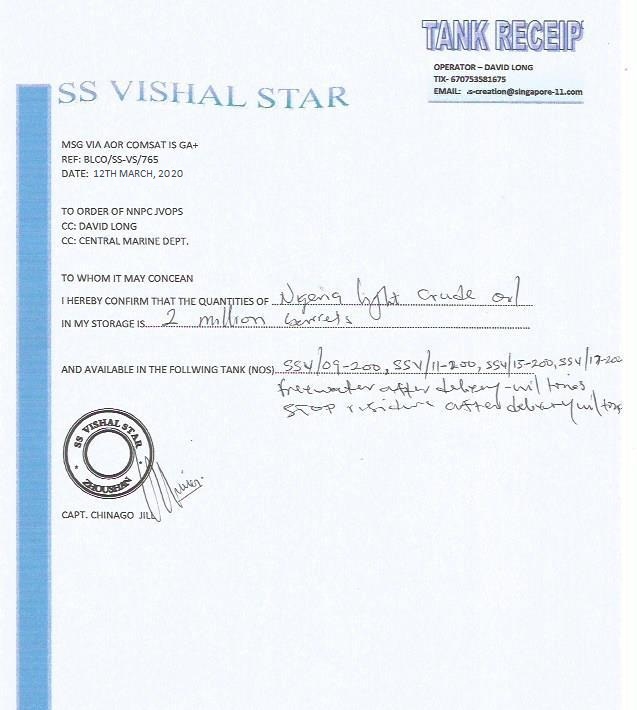 TANK RECEIP
OPERATOR – DAVID LONG
TIX- 670753581675
EMAIL: s-creation@singapore-11.com
SS VISHAL STAR
MSG VIA AOR COMSAT IS GA+
REF: BLCO/SS-VS/765
DATE: 12TH MARCH, 2020
TO ORDER OF NNPC JVOPS
CC: DAVID LONG
CC: CENTRAL MARINE DEPT.
TO WHOM IT MAY CONCEAN
I HEREBY CONFIRM THAT THE QUANTITIES OF Nigeria light crude oil
IN MY STORAGE IS 2 million barrels
AND AVAILABLE IN THE FOLLWING TANK (NOS) SSV/09-200, SSV/11-200, SSV/15-200, SSV/17-200
freewater after delivery - nil tones
after delivery nil
SS VISHAL STAR
ZHOUSHAN
CAPT. CHINAGO JILL